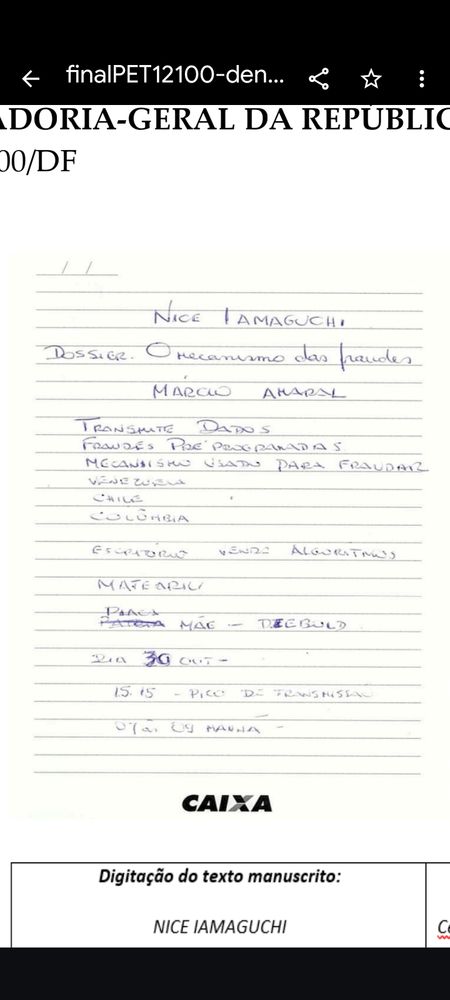 finalPET12100-den...
ADORIA-GERAL DA REPÚBLIC
00/DF
/ /
NICE IAMAGUCHI
DOSSIER. O mecanismo das fraudes
MÁRCIO AMARAL
TRANSMITE DADOS
FRAUDES PRÉ PROGRAMADAS
MECANISMO USADO PARA FRAUDAR
VENEZUELA
CHILE
COLÔMBIA
ESCRITÓRIO VENDE ALGORITMOS
PLACA
MÃE - DIEBOLD
DIA 30 OUT -
15.15 - PICO DE TRANSMISSÃO
MANHÃ -
CAIXA
Digitação do texto manuscrito:
NICE IAMAGUCHI